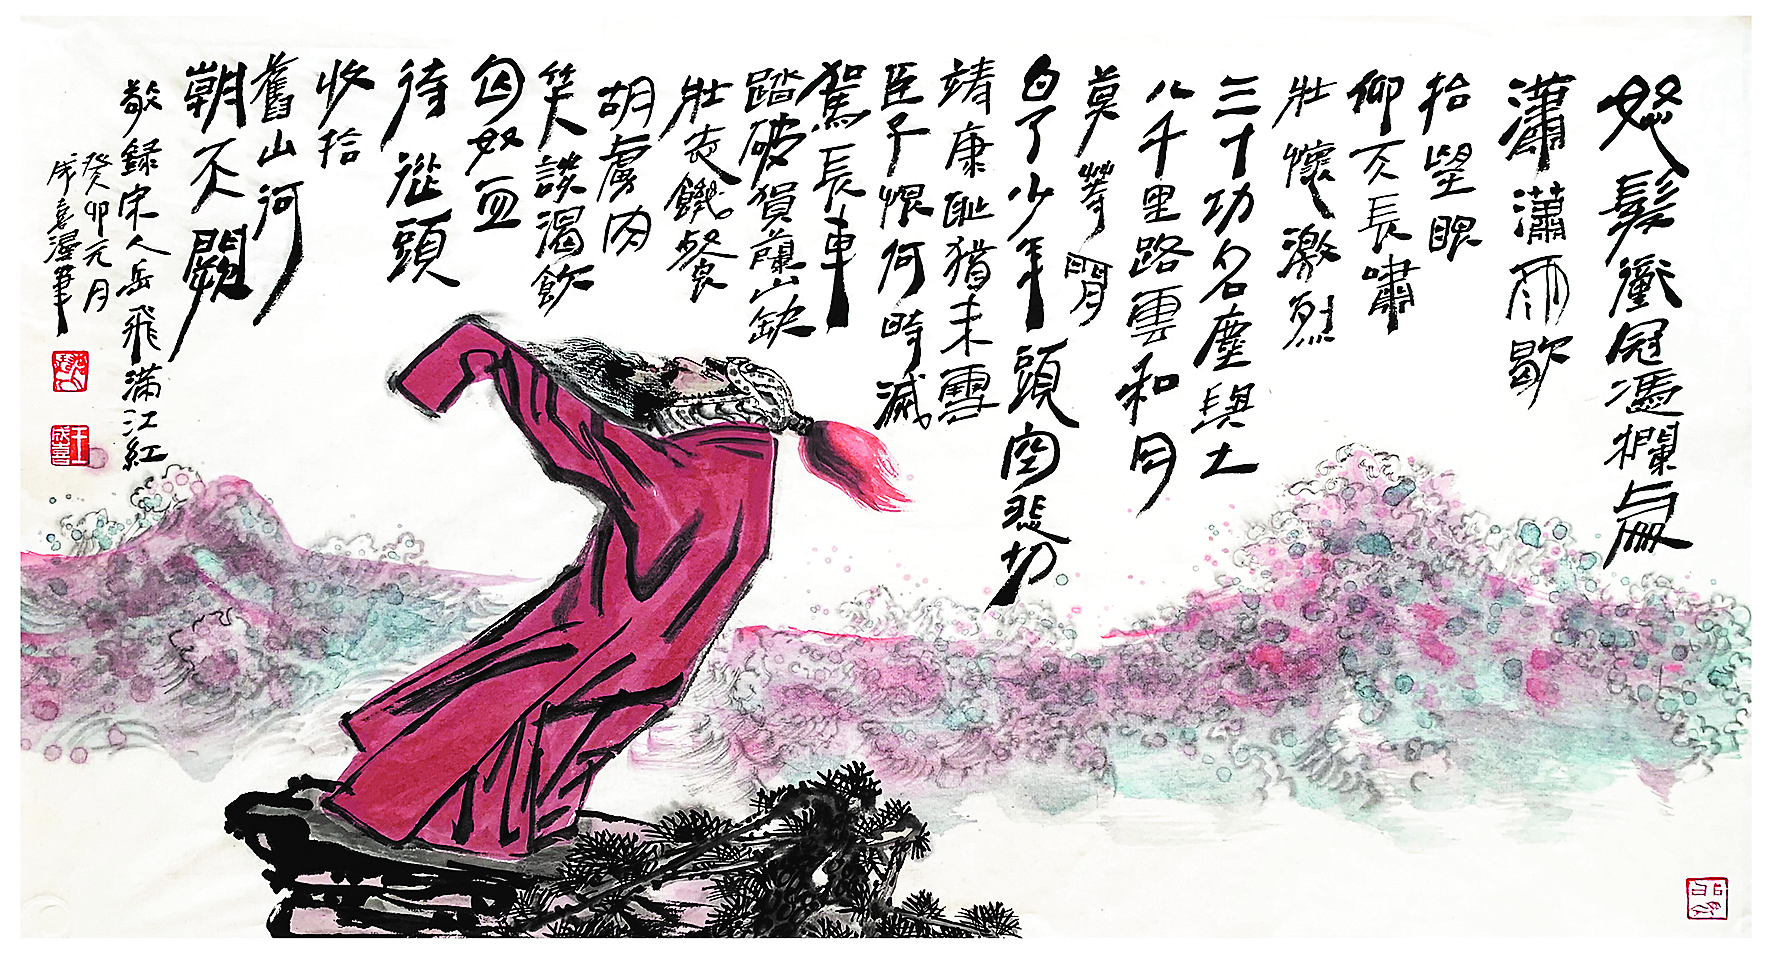 怒髮衝冠馮欄處
瀟瀟雨歇
抬望眼
仰天長嘯
壯懷激烈
三十功名塵與土
八千里路雲和月
莫等閒
白了少年頭空悲切
靖康恥猶未雪
臣子恨何時滅
駕長車
踏破賀蘭山缺
壯志饑餐
胡虜肉
笑談渴飲
匈奴血
待從頭
收拾
舊山河
朝天闕
敬録宋人岳飛滿江紅
癸卯元月
成喜筆
王成喜